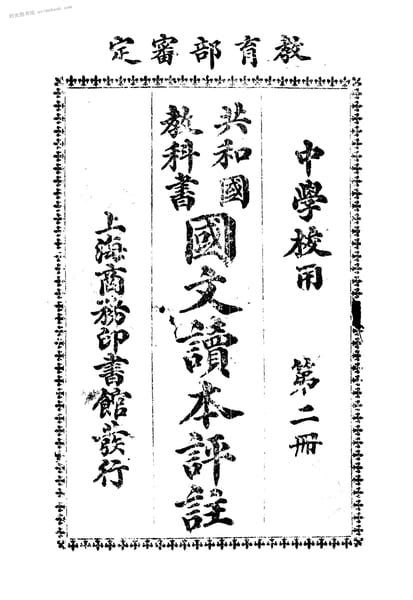 教育部審定
中學校用　第二册
共和國
教科書
國文讀本評註
上海商務印書館發行